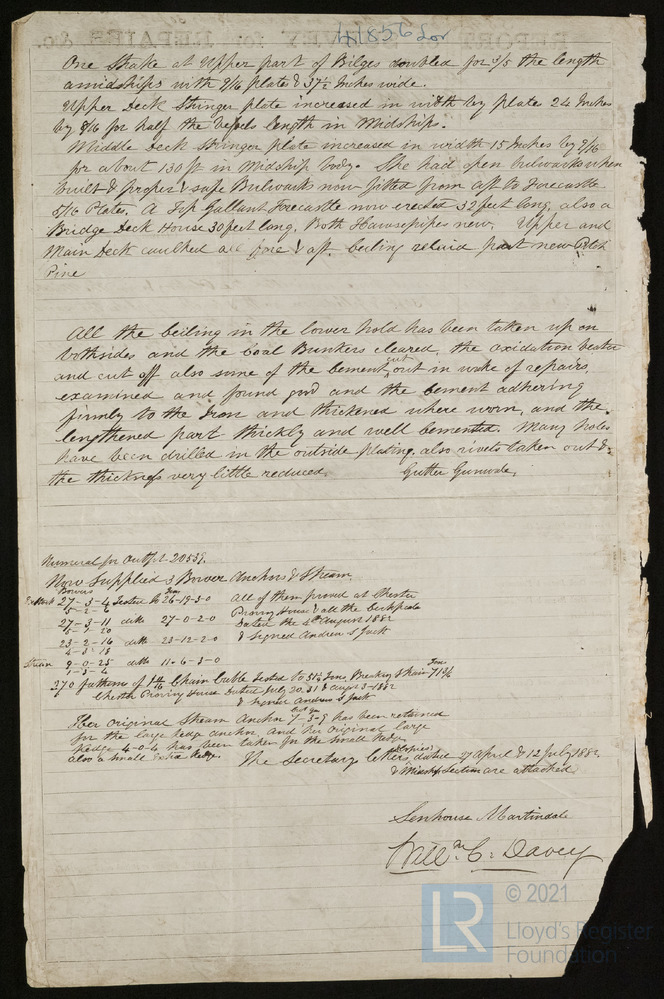 41856 Lon
REPORT of SURVEY for REPAIRS &c.
One Strake at Upper part of Bilges doubled for 3/5 the length
amidships with 9/16 plates & 37½ Inches wide.
Upper Deck Stringer plate increased in width by plates 24 Inches
by 8/16 for half the Vessels length in Midships.
Middle Deck Stringer plate increased in width 15 Inches by 9/16
for about 130 ft in Midship body. She had open bulwarks when
built & proper & safe Bulwarks now fitted from aft to Forecastle
5/16 Plates. A Top Gallant Forecastle now erected 32 feet long, also a
Bridge Deck House 30 feet long. Both Hawsepipes new. Upper and
Main Deck caulked all fore & aft. Ceiling relaid part new Pitch
Pine
All the Ceiling in the lower hold has been taken up on
bothsides and the Coal Bunkers cleared, the oxidation beaten
and cut off also some of the cement cut out in wake of repairs,
examined and found good and the cement adhering
firmly to the Iron and thickened where worn, and the
lengthened part thickly and well cemented. Many holes
have been drilled in the outside plating, also rivets taken out &
the thickness very little reduced. Gutter Gunwale.
Numeral for Outfit 20539.
Now Supplied 3 Bower Anchors & Stream.
Bowers Tons
27-3-4 Tested to 26-19-3-0 all of them proved at Chester
5-2-6 Proving House & all the Certificates
27-3-11 ditto 27-0-2-0 Dated the 4th August 1882
5-1-20 & Signed Andrew S Jack
23-2-16 ditto 23-12-2-0
4-3-18
Stream 9-0-25 ditto 11-6-3-0
1-3-4
270 fathoms of Chain Cable tested to 51¼ Tons, Breaking Strain 71¾ Tons
Chester Proving House Dated July 20. 31 & Aug 3-1882
& Signed Andrew S Jack
Her original Stream Anchor 7-3-9 has been retained
for the large kedge anchor, and her original large
Kedge 4-0-4 has been taken for the small Kedge
also a small extra Kedge. The Secretary letters, (Copies) dated 27 April & 12 July 1882.
& Midship Section are attached
Senhouse Martindale
Willm. C. Davey
© 2021
LR
Lloyd's Register
Foundation